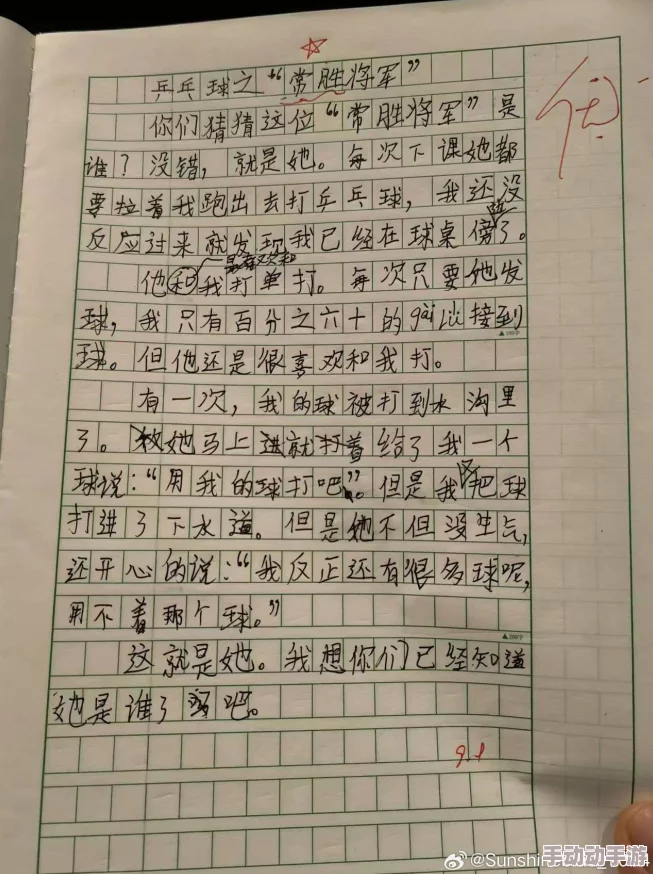 乒乓球之“常胜将军”
你们猜猜这位“常胜将军”是
谁？没错，就是她。每次下课她都
要拉着我跑出去打乒乓球，我还没
反应过来就发现我已经在球桌傍了。
最喜欢和
他和我打单打。每次只要她发
球，我只有百分之六十的gài lǜ接到
球。但他还是很喜欢和我打。
有一次，我的球被打到水沟里
了。她马上就给了我一个
球说：“用我的球打吧”。但是我又把球
打进了下水道。但是她不但没生气，
还开心的说：“我反正还有很多球呢，
用不着那个球。”
这就是她。我想你们已经知道
她是谁了吧。
优
9.1
@Sunshine
手动动手游